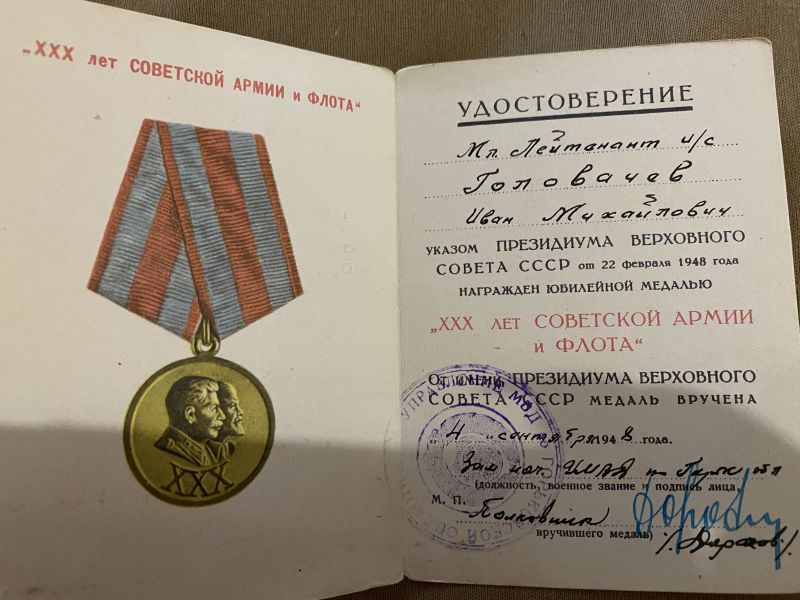 „XXX лет СОВЕТСКОЙ АРМИИ и ФЛОТА“
XXX
УДОСТОВЕРЕНИЕ
Мл. Лейтенант и/с
Головачев
Иван Михайлович
УКАЗОМ ПРЕЗИДИУМА ВЕРХОВНОГО
СОВЕТА СССР от 22 февраля 1948 года
НАГРАЖДЕН ЮБИЛЕЙНОЙ МЕДАЛЬЮ
„XXX ЛЕТ СОВЕТСКОЙ АРМИИ
и ФЛОТА“
От имени ПРЕЗИДИУМА ВЕРХОВНОГО
СОВЕТА СССР МЕДАЛЬ ВРУЧЕНА
"4" сентября 1948 года.
Зам нач.
(должность, военное звание и подпись лица,
М. П. Полковник
вручившего медаль)
УПРАВЛЕНИЕ МВД ПО ГОРЬКОВСКОЙ